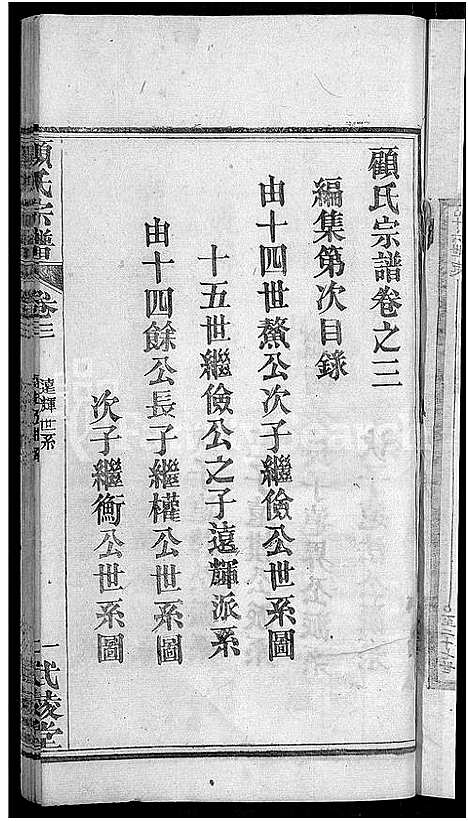 顧氏宗譜卷之三
編集第次目錄
由十四世鰲公次子繼儉公世系圖
十五世繼儉公之子遠輝派系
由十四餘公長子繼權公世系圖
次子繼衡公世系圖
顧氏宗譜
卷三
遠輝世系
一
武陵堂